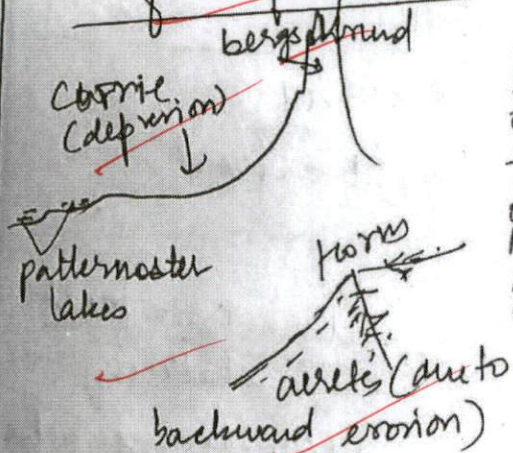 bergschrund
corrie
(depression)
patternoster
lakes
Horns
aerets (due to
backward erosion)